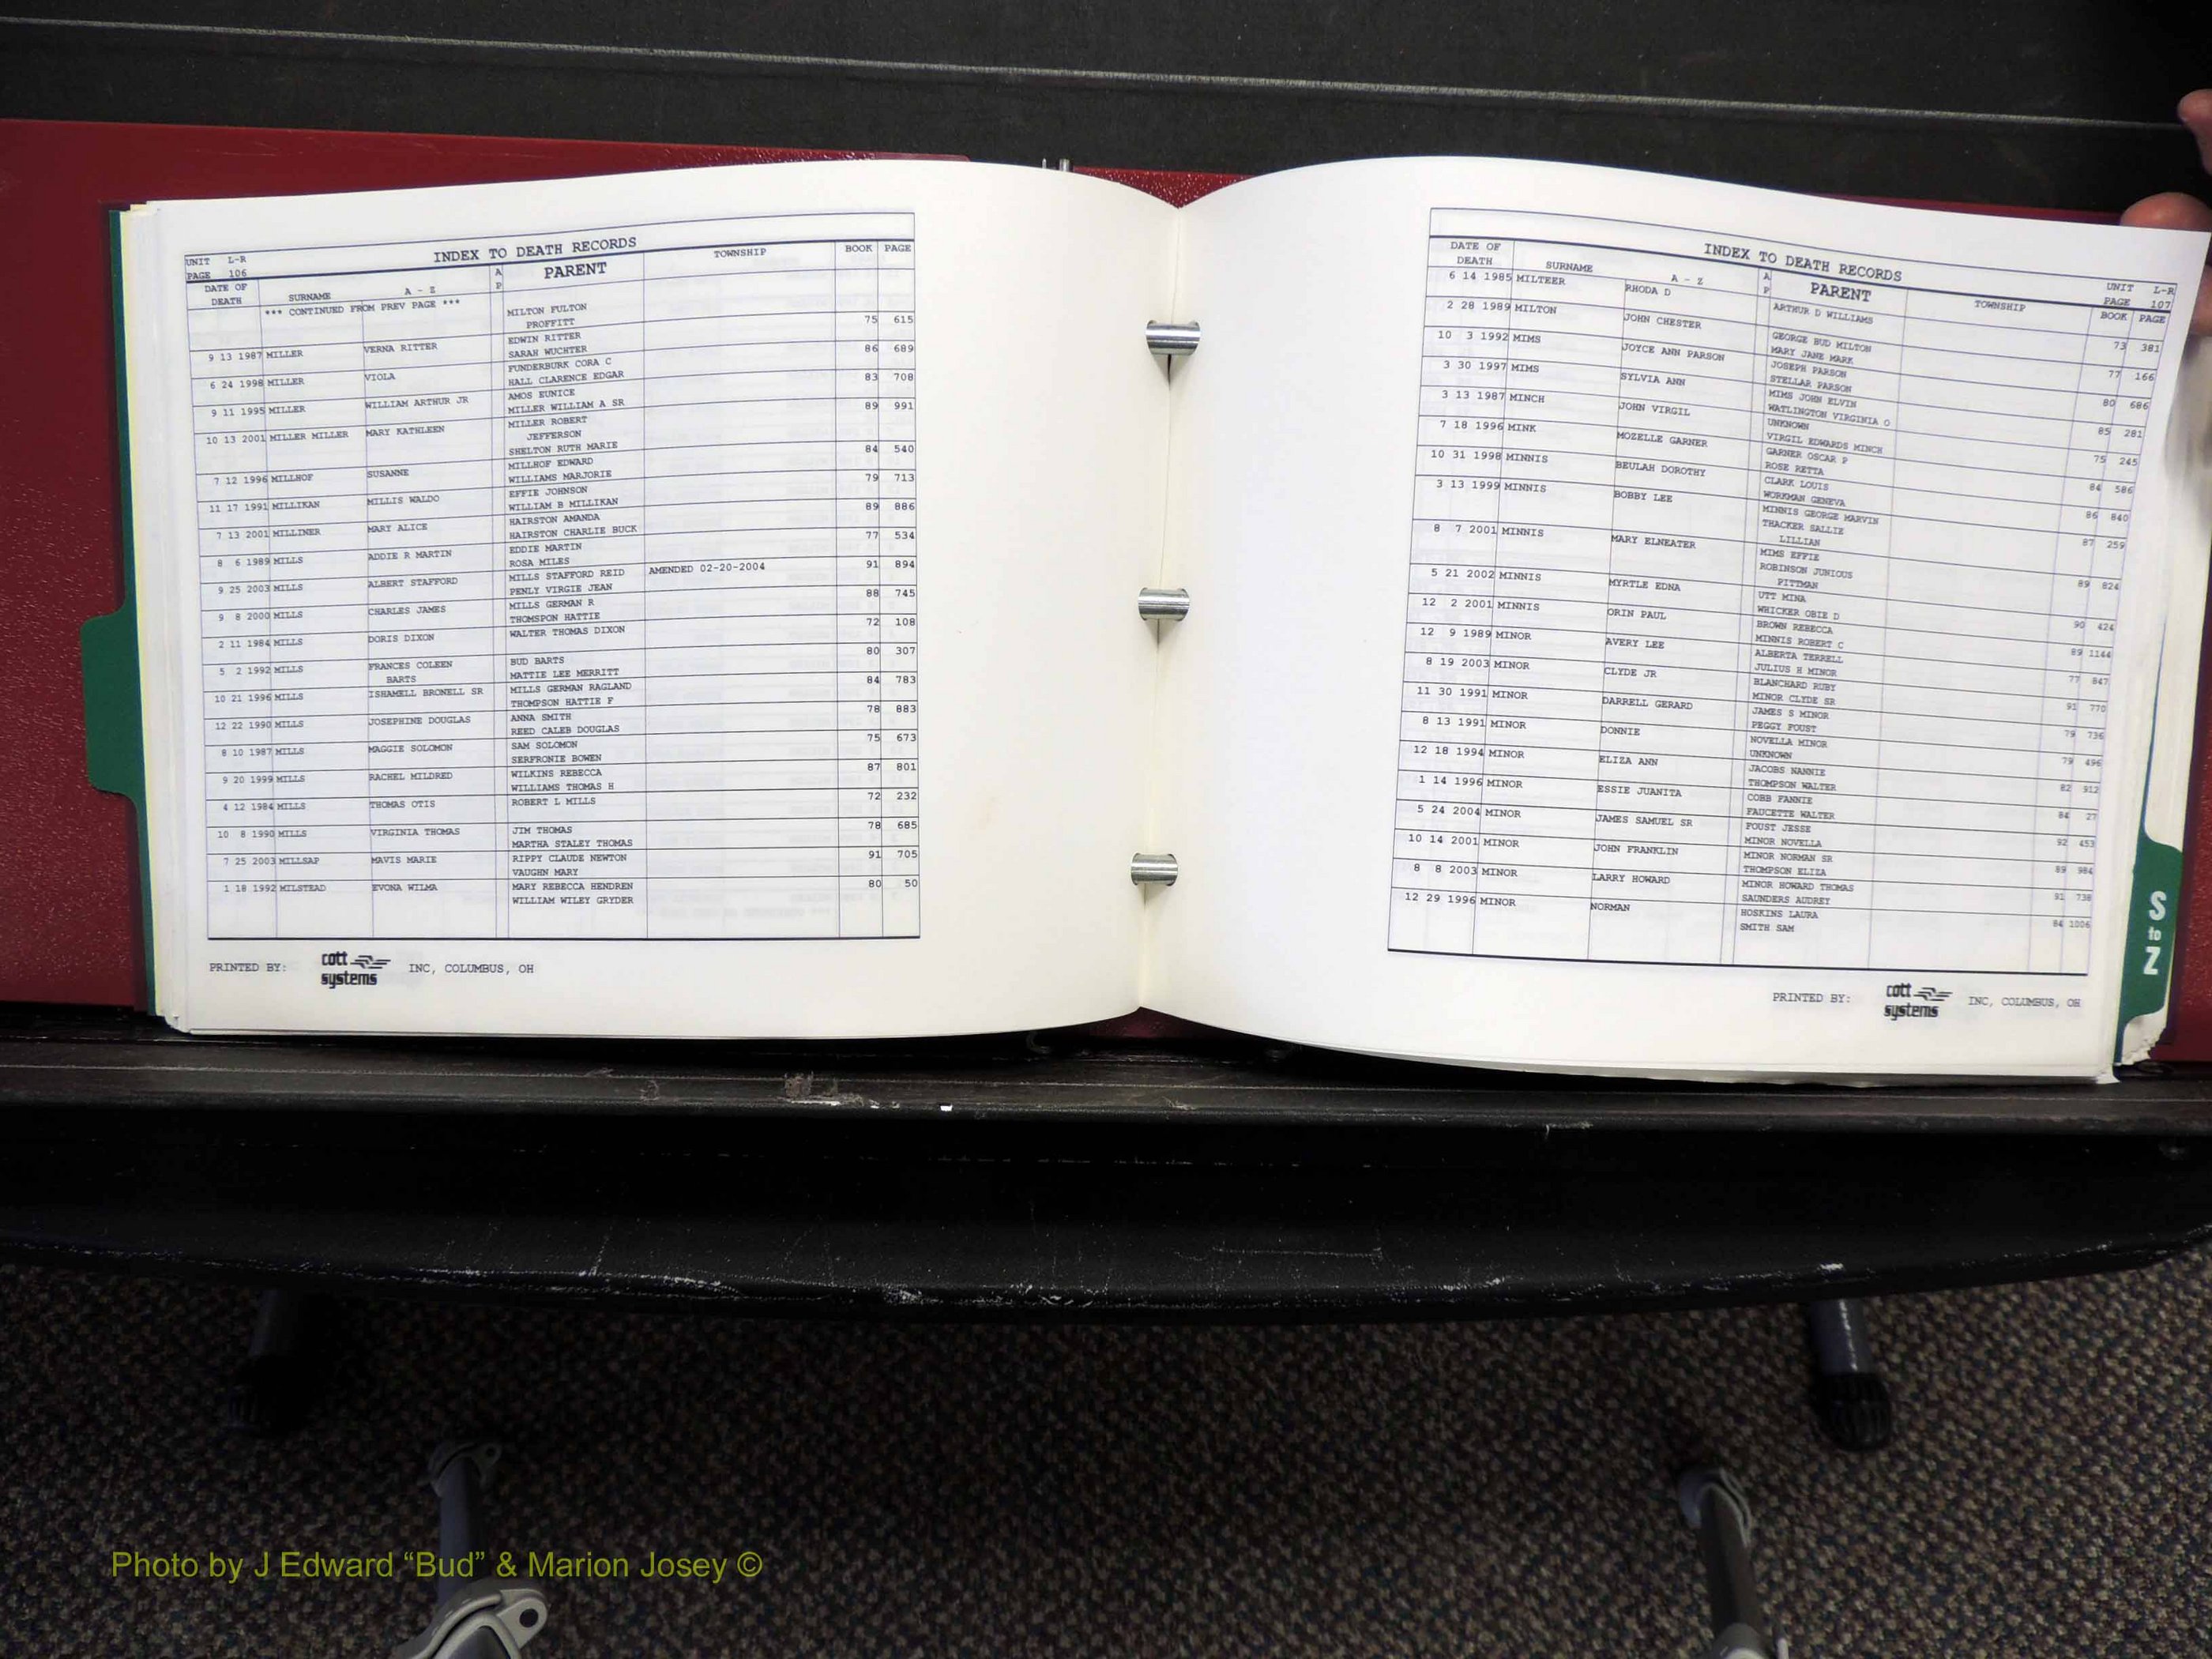 UNIT L-R INDEX TO DEATH RECORDS
PAGE 106
DATE OF DEATH SURNAME A - Z A P PARENT TOWNSHIP BOOK PAGE
*** CONTINUED FROM PREV PAGE *** MILTON FULTON
PROFFITT
9 13 1987 MILLER VERNA RITTER EDWIN RITTER 75 615
SARAH WUCHTER
6 24 1998 MILLER VIOLA FUNDERBURK CORA C 86 689
HALL CLARENCE EDGAR
9 11 1995 MILLER WILLIAM ARTHUR JR AMOS EUNICE 83 708
MILLER WILLIAM A SR
10 13 2001 MILLER MILLER MARY KATHLEEN MILLER ROBERT 89 991
JEFFERSON
SHELTON RUTH MARIE
7 12 1996 MILLHOF SUSANNE MILLHOF EDWARD 84 540
WILLIAMS MARJORIE
11 17 1991 MILLIKAN MILLIS WALDO EFFIE JOHNSON 79 713
WILLIAM B MILLIKAN
7 13 2001 MILLINER MARY ALICE HAIRSTON AMANDA 89 886
HAIRSTON CHARLIE BUCK
8 6 1989 MILLS ADDIE R MARTIN EDDIE MARTIN 77 534
ROSA MILES
9 25 2003 MILLS ALBERT STAFFORD MILLS STAFFORD REID AMENDED 02-20-2004 91 894
PENLY VIRGIE JEAN
9 8 2000 MILLS CHARLES JAMES MILLS GERMAN R 88 745
THOMSPON HATTIE
2 11 1984 MILLS DORIS DIXON WALTER THOMAS DIXON 72 108
5 2 1992 MILLS FRANCES COLEEN BUD BARTS 80 307
BARTS MATTIE LEE MERRITT
10 21 1996 MILLS ISHAMELL BRONELL SR MILLS GERMAN RAGLAND 84 783
THOMPSON HATTIE F
12 22 1990 MILLS JOSEPHINE DOUGLAS ANNA SMITH 78 883
REED CALEB DOUGLAS
8 10 1987 MILLS MAGGIE SOLOMON SAM SOLOMON 75 673
SERFRONIE BOWEN
9 20 1999 MILLS RACHEL MILDRED WILKINS REBECCA 87 801
WILLIAMS THOMAS H
4 12 1984 MILLS THOMAS OTIS ROBERT L MILLS 72 232
10 8 1990 MILLS VIRGINIA THOMAS JIM THOMAS 78 685
MARTHA STALEY THOMAS
7 25 2003 MILLSAP MAVIS MARIE RIPPY CLAUDE NEWTON 91 705
VAUGHN MARY
1 18 1992 MILSTEAD EVONA WILMA MARY REBECCA HENDREN 80 50
WILLIAM WILEY GRYDER
PRINTED BY: cott systems INC, COLUMBUS, OH
INDEX TO DEATH RECORDS UNIT L-R
PAGE 107
DATE OF DEATH SURNAME A - Z A P PARENT TOWNSHIP BOOK PAGE
6 14 1985 MILTEER RHODA D ARTHUR D WILLIAMS 73 381
2 28 1989 MILTON JOHN CHESTER GEORGE BUD MILTON 77 166
MARY JANE MARK
10 3 1992 MIMS JOYCE ANN PARSON JOSEPH PARSON 80 686
STELLAR PARSON
3 30 1997 MIMS SYLVIA ANN MIMS JOHN ELVIN 85 281
WATLINGTON VIRGINIA O
3 13 1987 MINCH JOHN VIRGIL UNKNOWN 75 245
VIRGIL EDWARDS MINCH
7 18 1996 MINK MOZELLE GARNER GARNER OSCAR P 84 586
ROSE RETTA
10 31 1998 MINNIS BEULAH DOROTHY CLARK LOUIS 86 840
WORKMAN GENEVA
3 13 1999 MINNIS BOBBY LEE MINNIS GEORGE MARVIN 87 259
THACKER SALLIE
LILLIAN
8 7 2001 MINNIS MARY ELNEATER MIMS EFFIE 89 824
ROBINSON JUNIOUS
PITTMAN
5 21 2002 MINNIS MYRTLE EDNA UTT MINA 90 424
WHICKER OBIE D
12 2 2001 MINNIS ORIN PAUL BROWN REBECCA 89 1144
MINNIS ROBERT C
12 9 1989 MINOR AVERY LEE ALBERTA TERRELL 77 847
JULIUS H MINOR
8 19 2003 MINOR CLYDE JR BLANCHARD RUBY 91 770
MINOR CLYDE SR
11 30 1991 MINOR DARRELL GERARD JAMES S MINOR 79 736
PEGGY FOUST
8 13 1991 MINOR DONNIE NOVELLA MINOR 79 496
UNKNOWN
12 18 1994 MINOR ELIZA ANN JACOBS NANNIE 82 912
THOMPSON WALTER
1 14 1996 MINOR ESSIE JUANITA COBB FANNIE 84 27
FAUCETTE WALTER
5 24 2004 MINOR JAMES SAMUEL SR FOUST JESSE 92 453
MINOR NOVELLA
10 14 2001 MINOR JOHN FRANKLIN MINOR NORMAN SR 89 984
THOMPSON ELIZA
8 8 2003 MINOR LARRY HOWARD MINOR HOWARD THOMAS 91 738
SAUNDERS AUDREY
12 29 1996 MINOR NORMAN HOSKINS LAURA 84 1006
SMITH SAM
PRINTED BY: cott systems INC, COLUMBUS, OH
S
to
Z
Photo by J Edward “Bud” & Marion Josey ©